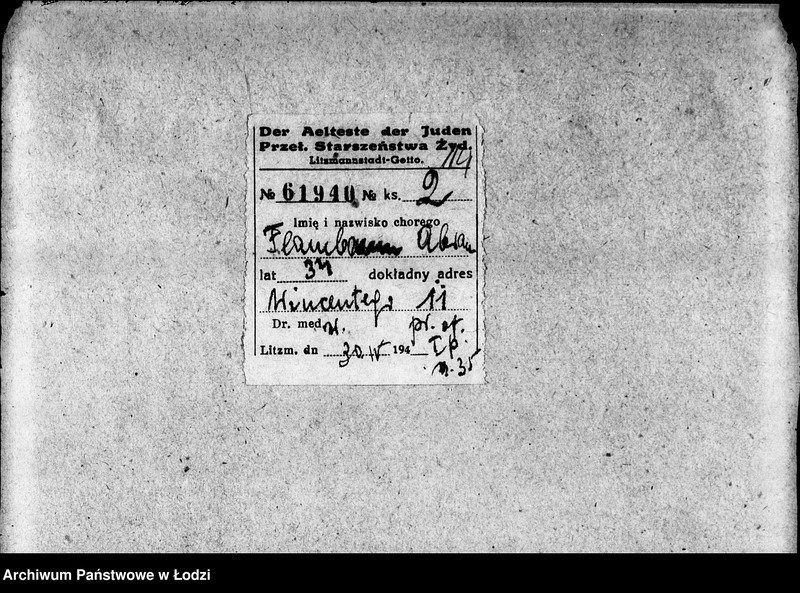 Der Aelteste der Juden
Przeł. Starszeństwa Żyd.
Litzmannstadt-Getto.
№ 61940 № ks. 2
Imię i nazwisko chorego
Abram
lat 34 dokładny adres
Wincentego 11
Dr. med. pr. of.
Litzm. dn 30 IV 194 I p.
m. 35
Archiwum Państwowe w Łodzi